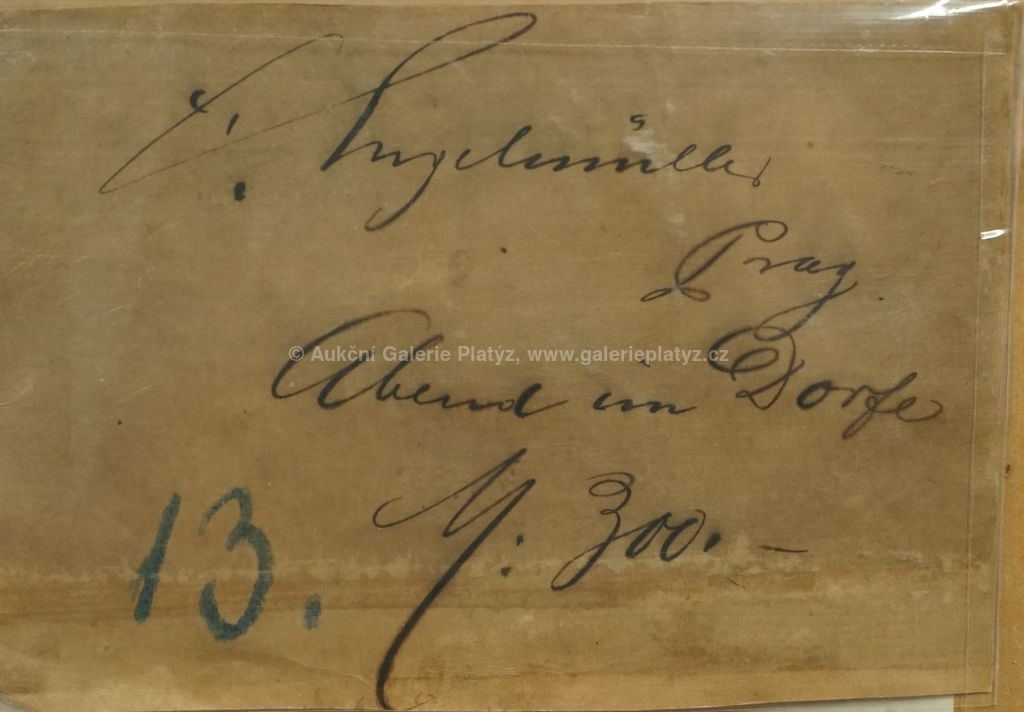 F. Engelmüller
Prag
© Aukční Galerie Platýz, www.galerieplatyz.cz
Abend im Dorfe
M. 300.—
13.